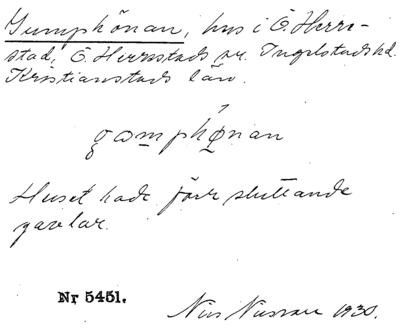 Gumphönan, hus i Ö. Herre-
stad, Ö. Herrestads sn. Ingelstads hd.
Kristianstads län.
gωmphø̱nan
Huset hade förr sluttande
gavlar.
Nr 5451.
Nils 1930.